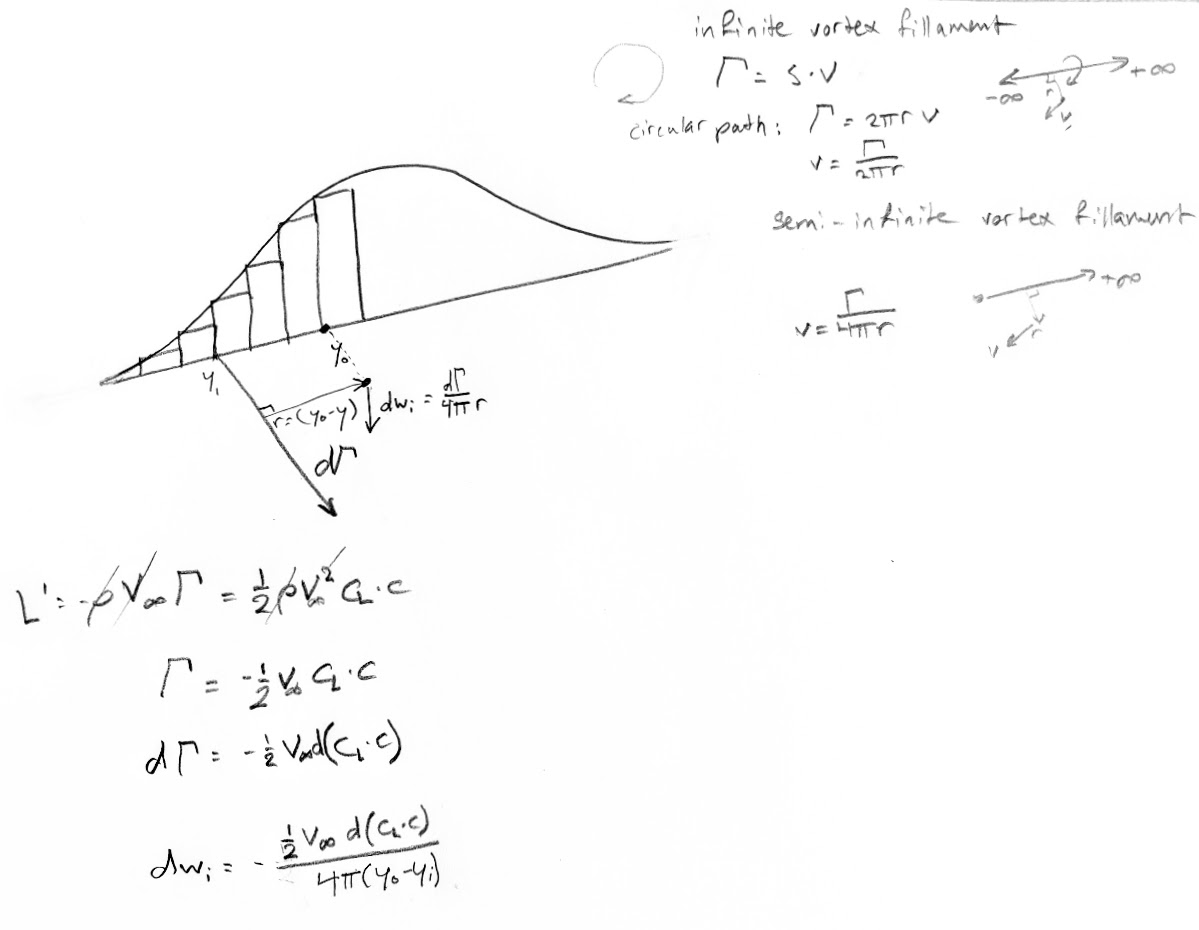 infinite vortex fillament
Γ = S·V
-∞ r v +∞
circular path: Γ = 2πr v
v = Γ/2πr
semi-infinite vortex fillament
v = Γ/4πr
+∞
v r
y₀
y₁
r=(y₀-y)
dwᵢ = dΓ/4πr
dΓ
L' = -ρV∞Γ = ½ρV∞² C_L·c
Γ = -½V∞ C_L·c
dΓ = -½V∞d(C_L·c)
dwᵢ = - ½V∞ d(C_L·c) / 4π(y₀-yᵢ)